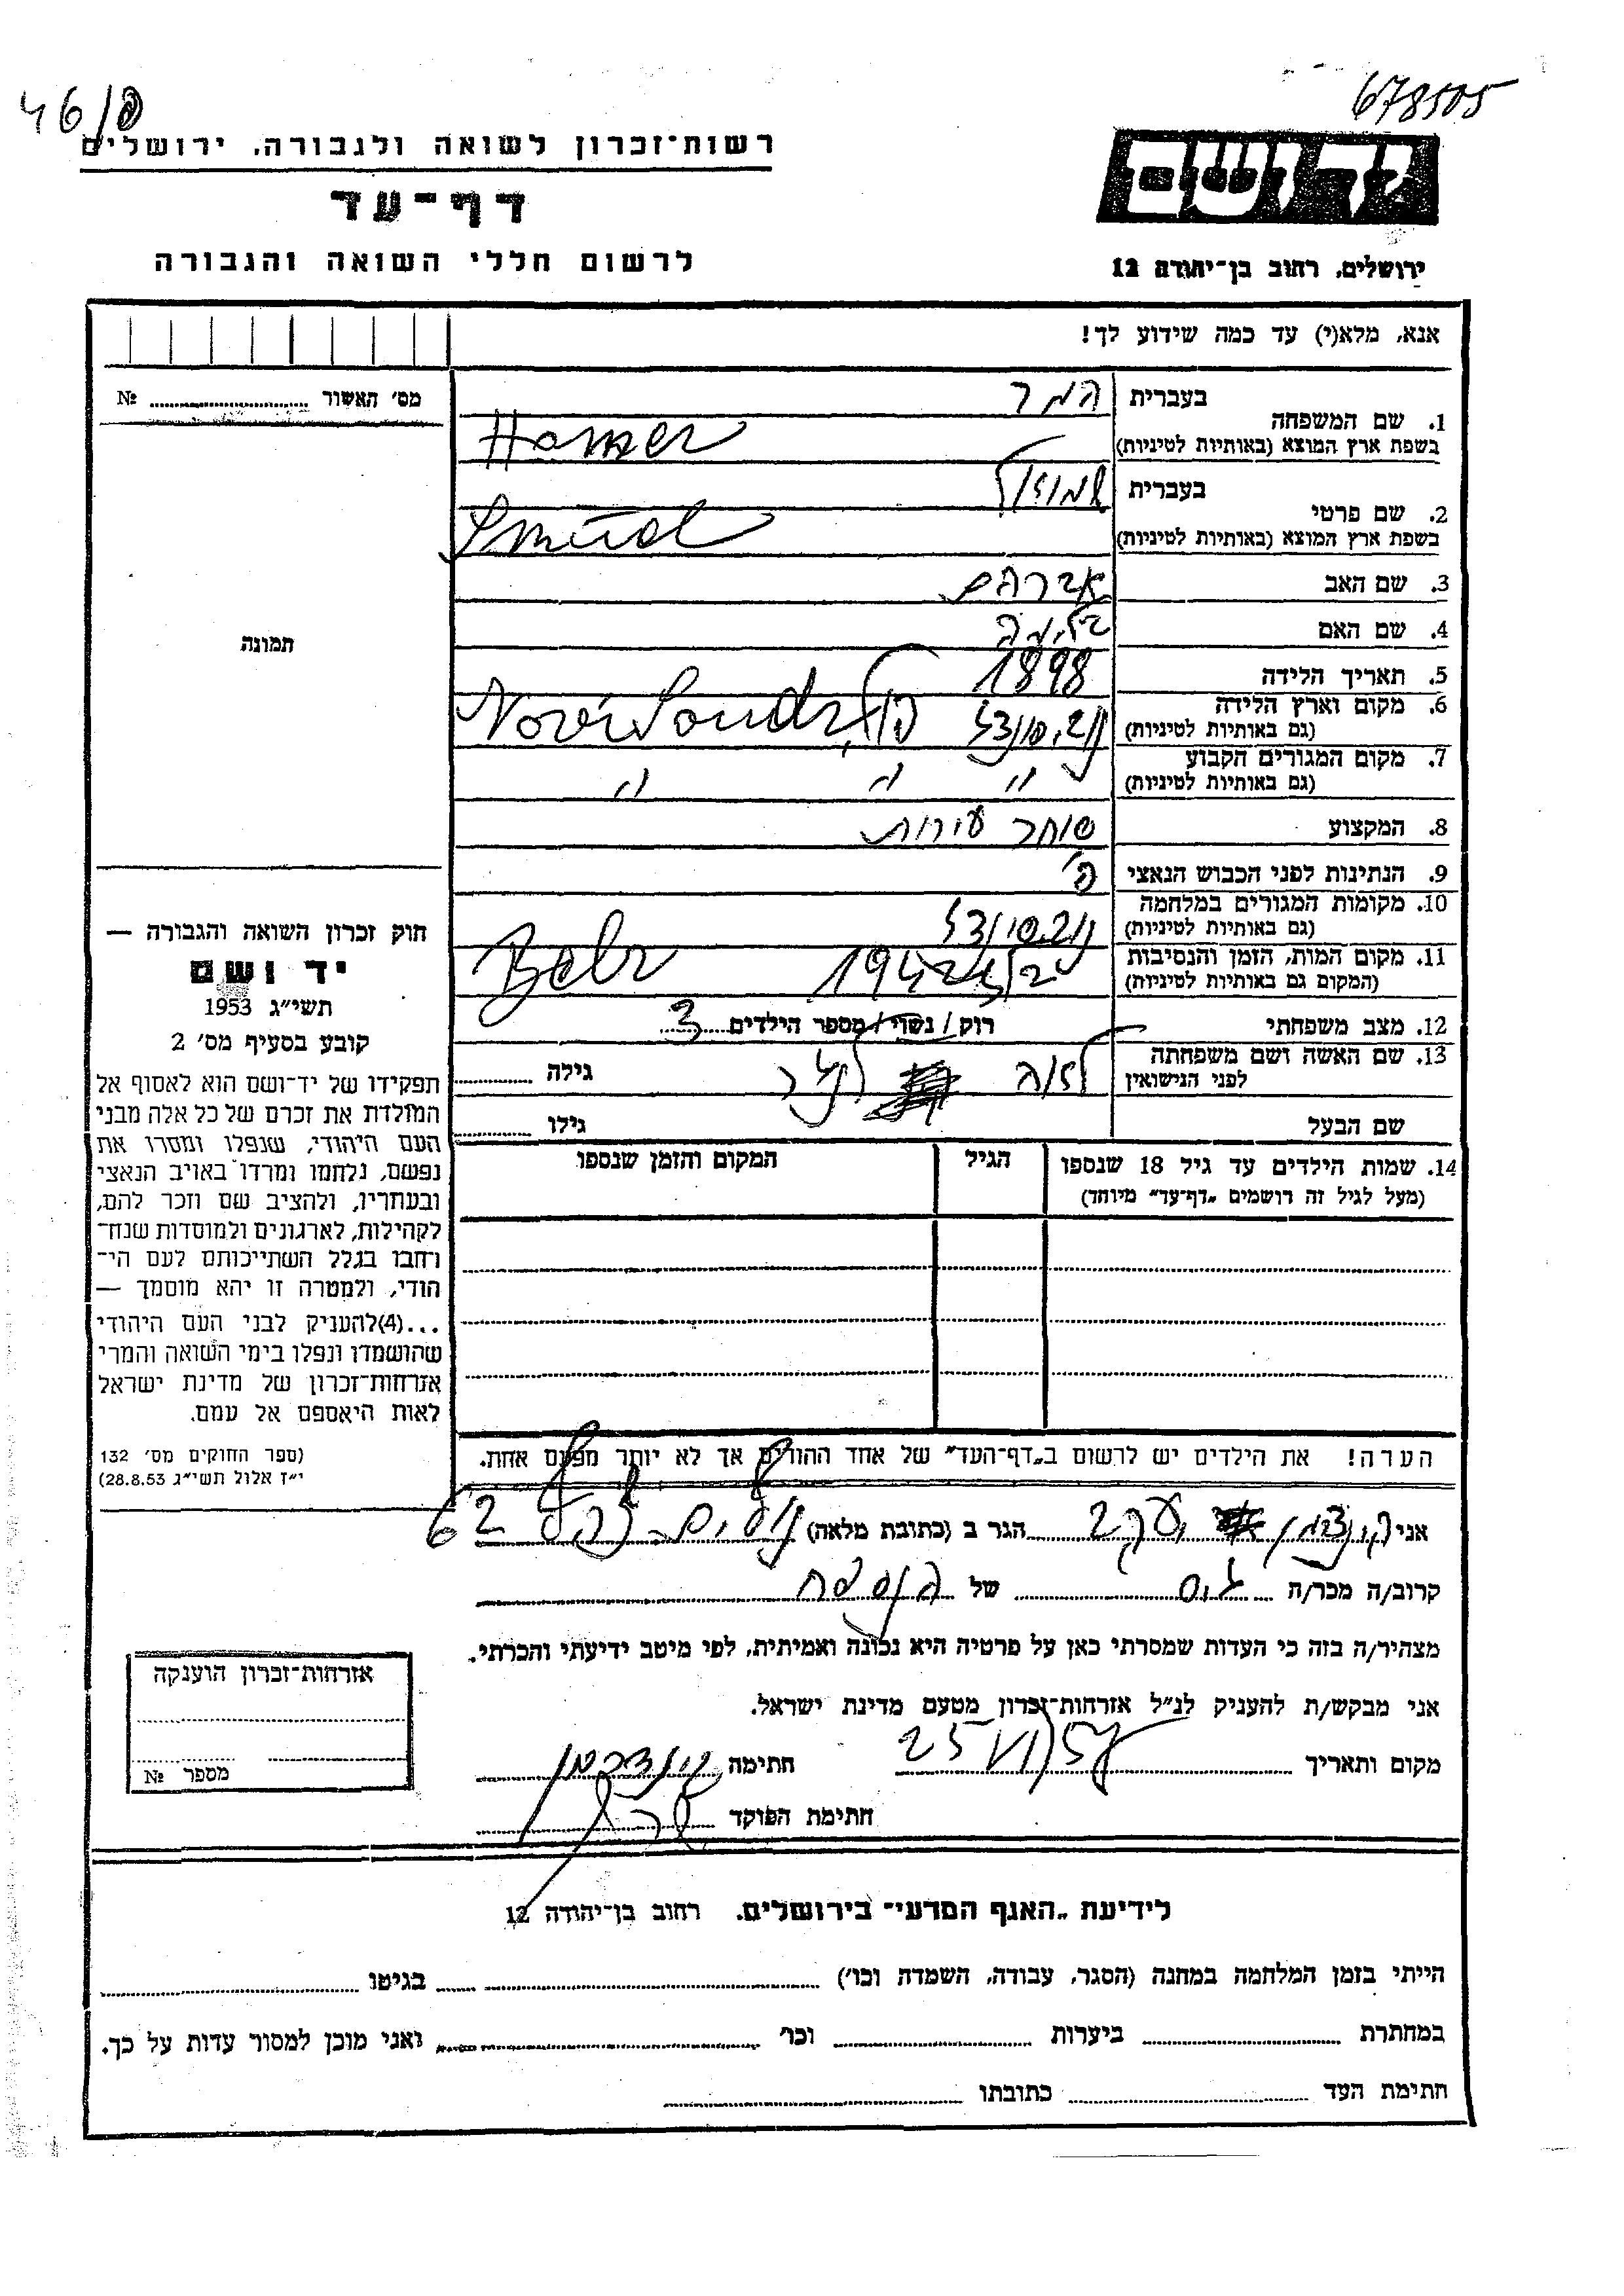 46/פ
678505
רשות־זכרון לשואה ולגבורה, ירושלים
דף־עד
לרשום חללי השואה והגבורה
יד ושם
ירושלים, רחוב בן־יהודה 12
אנא, מלא(י) עד כמה שידוע לך!
מס׳ האשור № 
תמונה
1. שם המשפחה בעברית המר
בשפת ארץ המוצא (באותיות לטיניות) Hamer
2. שם פרטי בעברית שמואל
בשפת ארץ המוצא (באותיות לטיניות)
3. שם האב אברהם
4. שם האם
5. תאריך הלידה 1898
6. מקום וארץ הלידה
(גם באותיות לטיניות)
7. מקום המגורים הקבוע
(גם באותיות לטיניות) " " "
8. המקצוע סוחר עורות
9. הנתינות לפני הכבוש הנאצי פ'
10. מקומות המגורים במלחמה
(גם באותיות לטיניות)
11. מקום המות, הזמן והנסיבות בלז 1942 Belz
(המקום גם באותיות לטיניות)
12. מצב משפחתי רוק / נשוי / מספר הילדים 3
13. שם האשה ושם משפחתה לאה גילה
לפני הנישואין
שם הבעל גילו
14. שמות הילדים עד גיל 18 שנספו
(מעל לגיל זה רושמים „דף־עד״ מיוחד)
הגיל
המקום והזמן שנספו
חוק זכרון השואה והגבורה —
יד ושם
תשי״ג 1953
קובע בסעיף מס׳ 2
תפקידו של יד־ושם הוא לאסוף אל
המולדת את זכרם של כל אלה מבני
העם היהודי, שנפלו ומסרו את
נפשם, נלחמו ומרדו באויב הנאצי
ובעוזריו, ולהציב שם וזכר להם,
לקהילות, לארגונים ולמוסדות שנח־
רחבו בגלל השתייכותם לעם הי־
הודי, ולמטרה זו יהא מוסמך —
...(4)להעניק לבני העם היהודי
שהושמדו ונפלו בימי השואה והמרי
אזרחות־זכרון של מדינת ישראל
לאות היאספם אל עמם.
(ספר החוקים מס׳ 132
י״ז אלול תשי״ג 28.8.53)
הערה! את הילדים יש לרשום ב„דף־העד״ של אחד ההורים אך לא יותר מפעם אחת.
אני יעקב הגר ב (כתובת מלאה) 62
קרוב/ה מכר/ה גיס של המנוח
מצהיר/ה בזה כי העדות שמסרתי כאן על פרטיה היא נכונה ואמיתית, לפי מיטב ידיעתי והכרתי.
אני מבקש/ת להעניק לנ״ל אזרחות־זכרון מטעם מדינת ישראל.
מקום ותאריך 25/VI 57 חתימה
חתימת הפוקד
אזרחות־זכרון הוענקה
מספר №
לידיעת „האגף המדעי״ בירושלים, רחוב בן־יהודה 12
הייתי בזמן המלחמה במחנה (הסגר, עבודה, השמדה וכו׳) בגיטו
במחתרת ביערות וכו׳ ואני מוכן למסור עדות על כך.
חתימת העד כתובתו